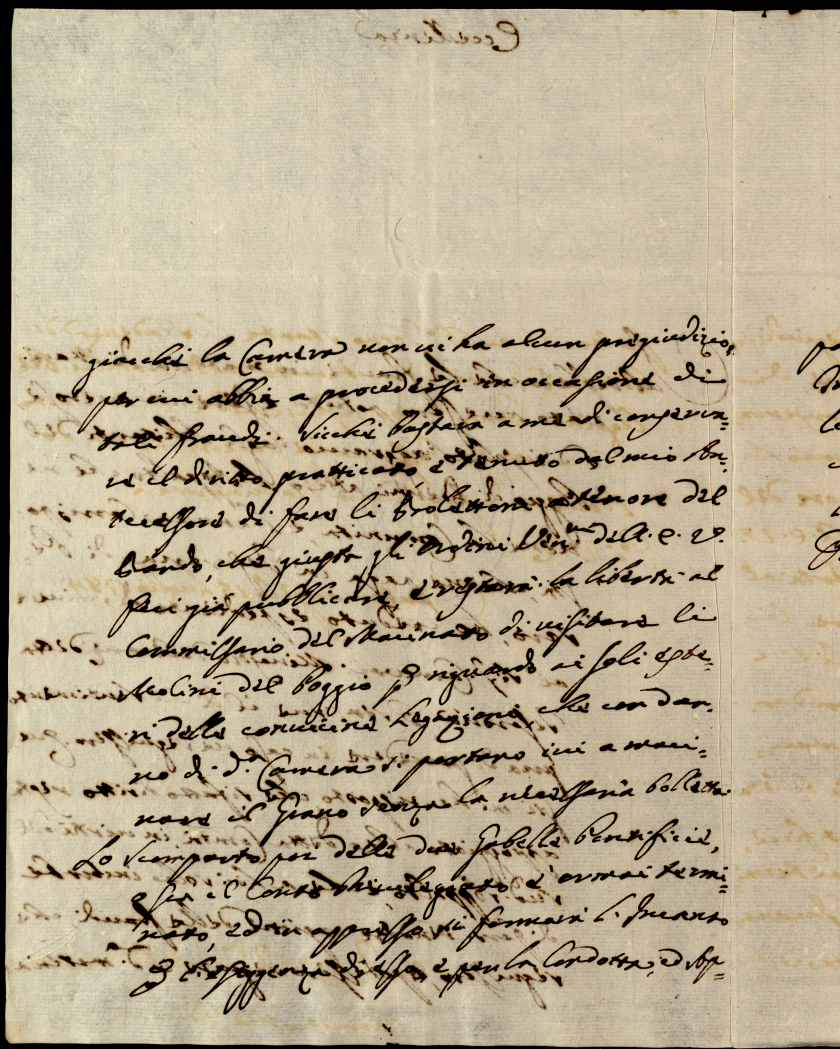 giacchè la Camera non vi ha alcun pregiudizio,
per cui abbia a procedersi in occasione di
tali fraudi. Sicchè bastarà a me di conserva=
re il diritto, pratticato, e tenuto dal mio An=
tecessore di fare li Bolettoni a tenore del
Bando, che giusta gli Ordini Ven.mi dell' E. V.
feci già pubblicare, e restarà la libertà al
Commissario del Macinato di visitare li
Molini del Poggio p riguardo ai soli este=
ri delle convicine Legazioni, che con dan=
no di d.a Camera si portano ivi a maci=
nare il Grano senza la necessaria bolletta.
Lo scomparto poi delle due Gabelle Pontificie,
e già il Conto Privilegiato è ormai termi=
nato, ed in appresso si formarà l' Incanto
p l' esiggenza di esso, e per la Condotta, ed Ap=